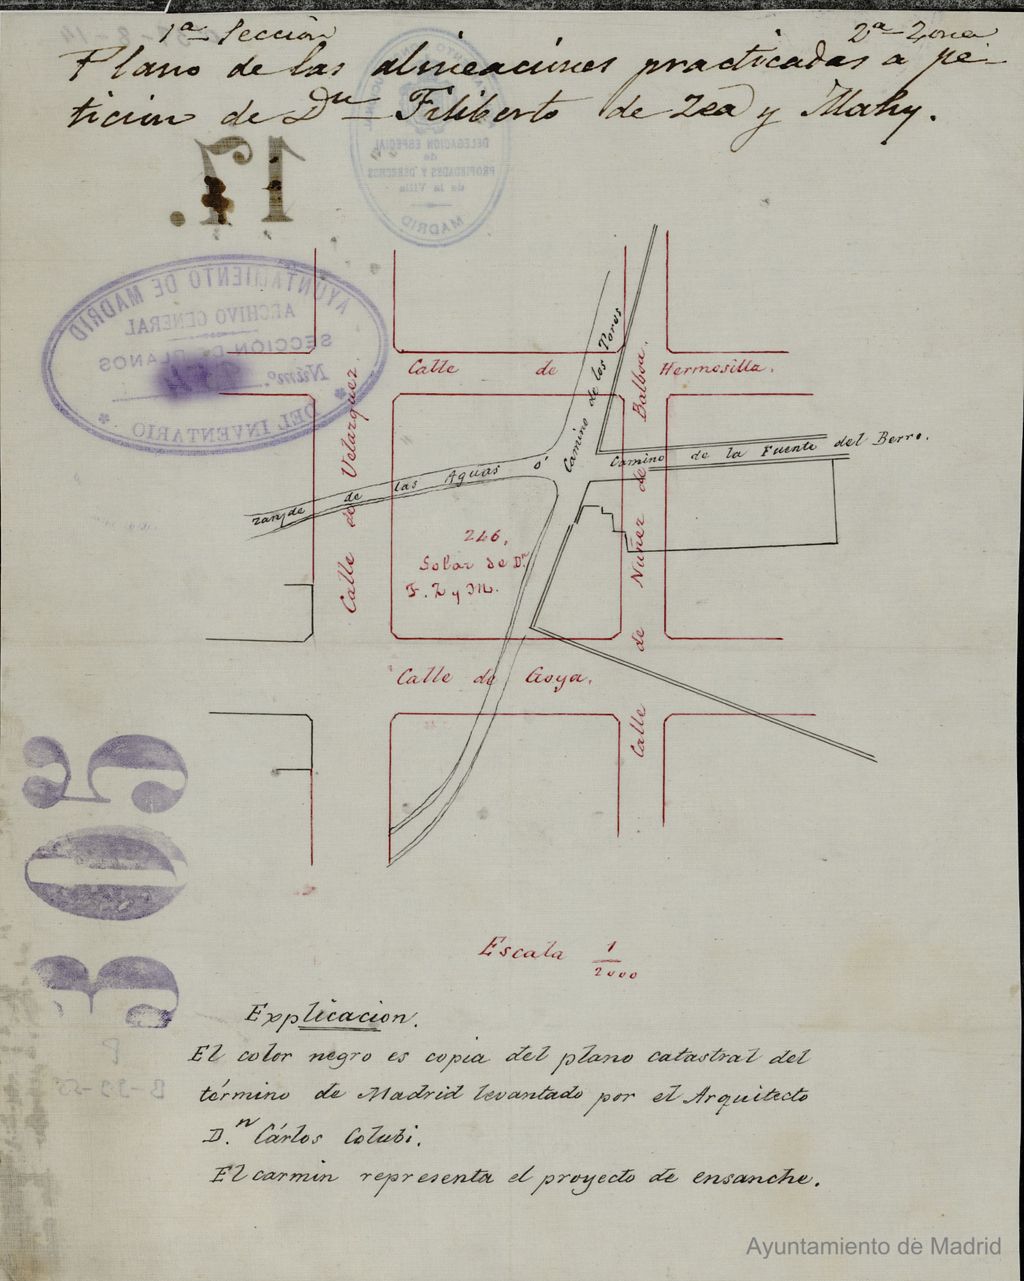 1ª Seccion 2ª Zona
Plano de las alineaciones practicadas a pe-
ticion de Dn Filiberto de Zea y Mahy.
17.
AYUNTAMIENTO DE MADRID
ARCHIVO GENERAL
SECCIÓN DE PLANOS
Núm.
DEL INVENTARIO
DELEGACION ESPECIAL
de
PROPIEDADES Y DERECHOS
de la Villa
MADRID
Calle de Hermosilla.
Calle de Velazquez.
Camino de los Poros
Calle de Nuñez de Balboa.
Camino de la Fuente del Berro.
de las Aguas ó
246.
Solar de Dn
F. Z y M.
Calle de Goya.
305
Escala 1/2000
Explicacion.
El color negro es copia del plano catastral del
término de Madrid levantado por el Arquitecto
D.n Cárlos Colubi.
El carmin representa el proyecto de ensanche.
Ayuntamiento de Madrid